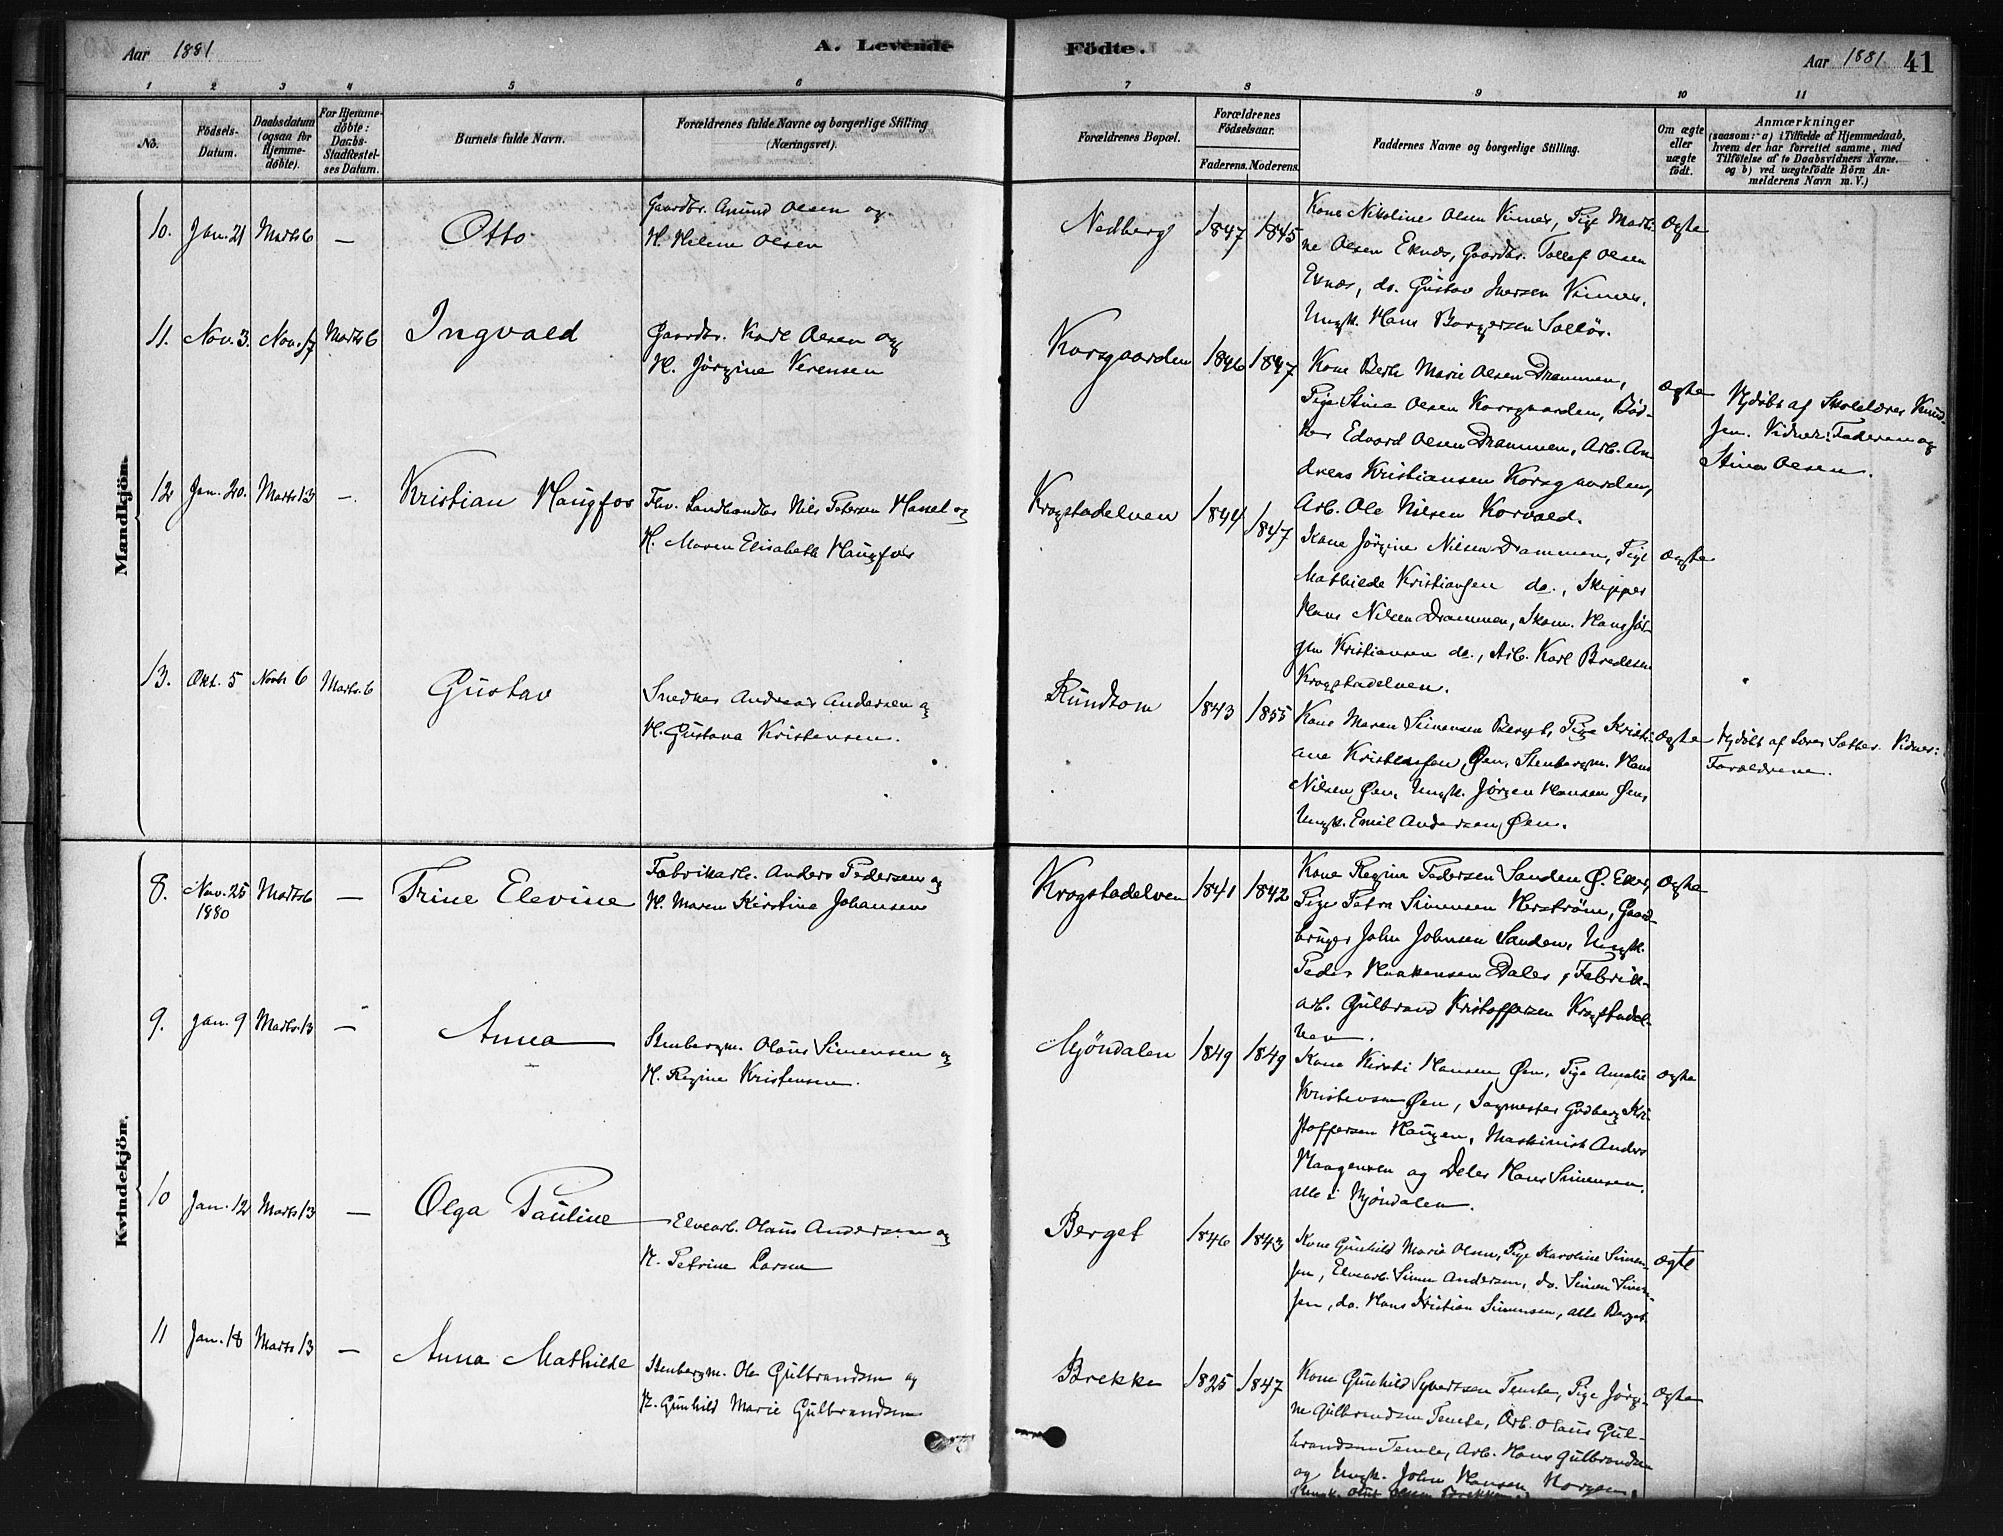 Aar 1881
A. Levende
Födte.
Aar 1881
41
1
2
3
4
5
6
7
8
9
10
11
No.
Födsels-
Datum.
Daabsdatum
(ogsaa for
Hjemme-
döbte).
For Hjemme-
döbte:
Daabs-
Stadfæstel-
ses Datum.
Barnets fulde Navn.
Forældrenes fulde Navne og borgerlige Stilling
(Næringsvei).
Forældrenes Bopæl.
Forældrenes
Födselsaar.
Faderens. Moderens.
Faddernes Navne og borgerlige Stilling.
Om ægte
eller
uægte
födt.
Anmærkninger
(saasom: a) i Tilfælde af Hjemmedaab,
hvem der har forrettet samme, med
Tilföielse af to Daabsvidners Navne.
og b) ved uægtefödte Börn An-
melderens Navn m. V.)
Mandkjön.
10. Jan. 21 Marts 6 — Otto
Gaardbr. Amund Olsen og
H. Helene Olsen
Nedberg 1847 1845
Kone Nikoline Olsen Vinnes, Pige Marti-
ne Olsen Eknes, Gaardbr. Tollef Olsen
Eknes, do. Gustav Iversen Vinnes.
Ungk. Hans Borgersen Solløs.
Ægte
11. Nov. 3. Nov. 17 Marts 6 Ingvald
Gaardbr. Karl Olsen og
H. Jørgine Verensen
Korsgaarden 1846 1847
Kone Berth Marie Olsen Drammen,
Pige Stina Olsen Korsgaarden, Bød-
ker Edvard Olsen Drammen, Arb. An-
dreas Kristiansen Korsgaarden,
Arb. Ole Nilsen Korvald.
Ægte
Hjdøbt af Skolelærer Knud-
sen. Vidner: Faderen og
Stina Olsen.
12 Jan. 20. Marts 13 — Kristian Haugfos
Fhv. Landhandler Nils Petersen Hassel og
H. Maren Elisabeth Haugfos
Krogstadelven 1844 1847
Kone Jørgine Nilsen Drammen, Pige
Mathilde Kristiansen do., Skipper
Hans Nilsen Drammen, Skom. Hans Jør-
gen Kristiansen do., Arb. Karl Bredesen
Krogstadelven.
Ægte
13. Okt. 5 Novbr 6 Marts 6 Gustav
Snedker Andreas Andersen og
H. Gustava Kristensen.
Rundtom 1843 1855
Kone Maren Simensen Berget, Pige Kristi-
ane Kristensen, Øen, Stenbergm. Hans
Nilsen Øen, Ungk. Jørgen Hansen Øen,
Ungk. Emil Andersen, Øen.
Ægte
Hjdøbt af Lærer Sætter. Vidner:
Forældrene.
Kvindekjön.
8. Nov. 25
1880
Marts 6 — Trine Elevine
Fabrikarb. Anders Pedersen og
H. Maren Kirstine Johansen
Krogstadelven 1841 1842
Kone Regine Pedersen Sanden Ø. Eker,
Pige Petra Simensen Herstrøm, Gaard-
bruger John Johnsen Sanden, Ungk.
Peder Haakensen Daler, Fabrik-
arb. Gulbrand Kristoffersen Krogstadel-
ven.
Ægte
9. Jan. 9 Marts 13 — Anna
Stenbergm. Olaus Simensen og
H. Regine Kristensen.
Mjøndalen 1849 1849
Kone Kirsti Hansen Øen, Pige Amalie
Kristensen Øen, Sagmester Gudberg Kri-
stoffersen Haugen, Maskinist Anders
Haagensen og Deler Hans Simensen,
alle i Mjøndalen.
Ægte
10 Jan. 12 Marts 13 — Olga Pauline
Elvearb. Olaus Andersen og
H. Petrine Larsen
Berget 1846 1843
Kone Gunhild Marie Olsen, Pige Karoline Simen-
sen, Elvearb. Simen Andersen, do. Simen Simen-
sen, do. Hans Kristian Simensen, alle Berget
Ægte
11 Jan. 18 Marts 13 — Anna Mathilde
Stenbergm. Ole Gulbrandsen og
H. Gunhild Marie Gulbrandsen
Brekke 1825 1847
Kone Gunhild Syvertsen Temte, Pige Jørgi-
ne Gulbrandsen Temte, Arb. Olaus Gul-
brandsen Temte, Arb. Hans Gulbrandsen
og Ungk. John Hansen
Ægte